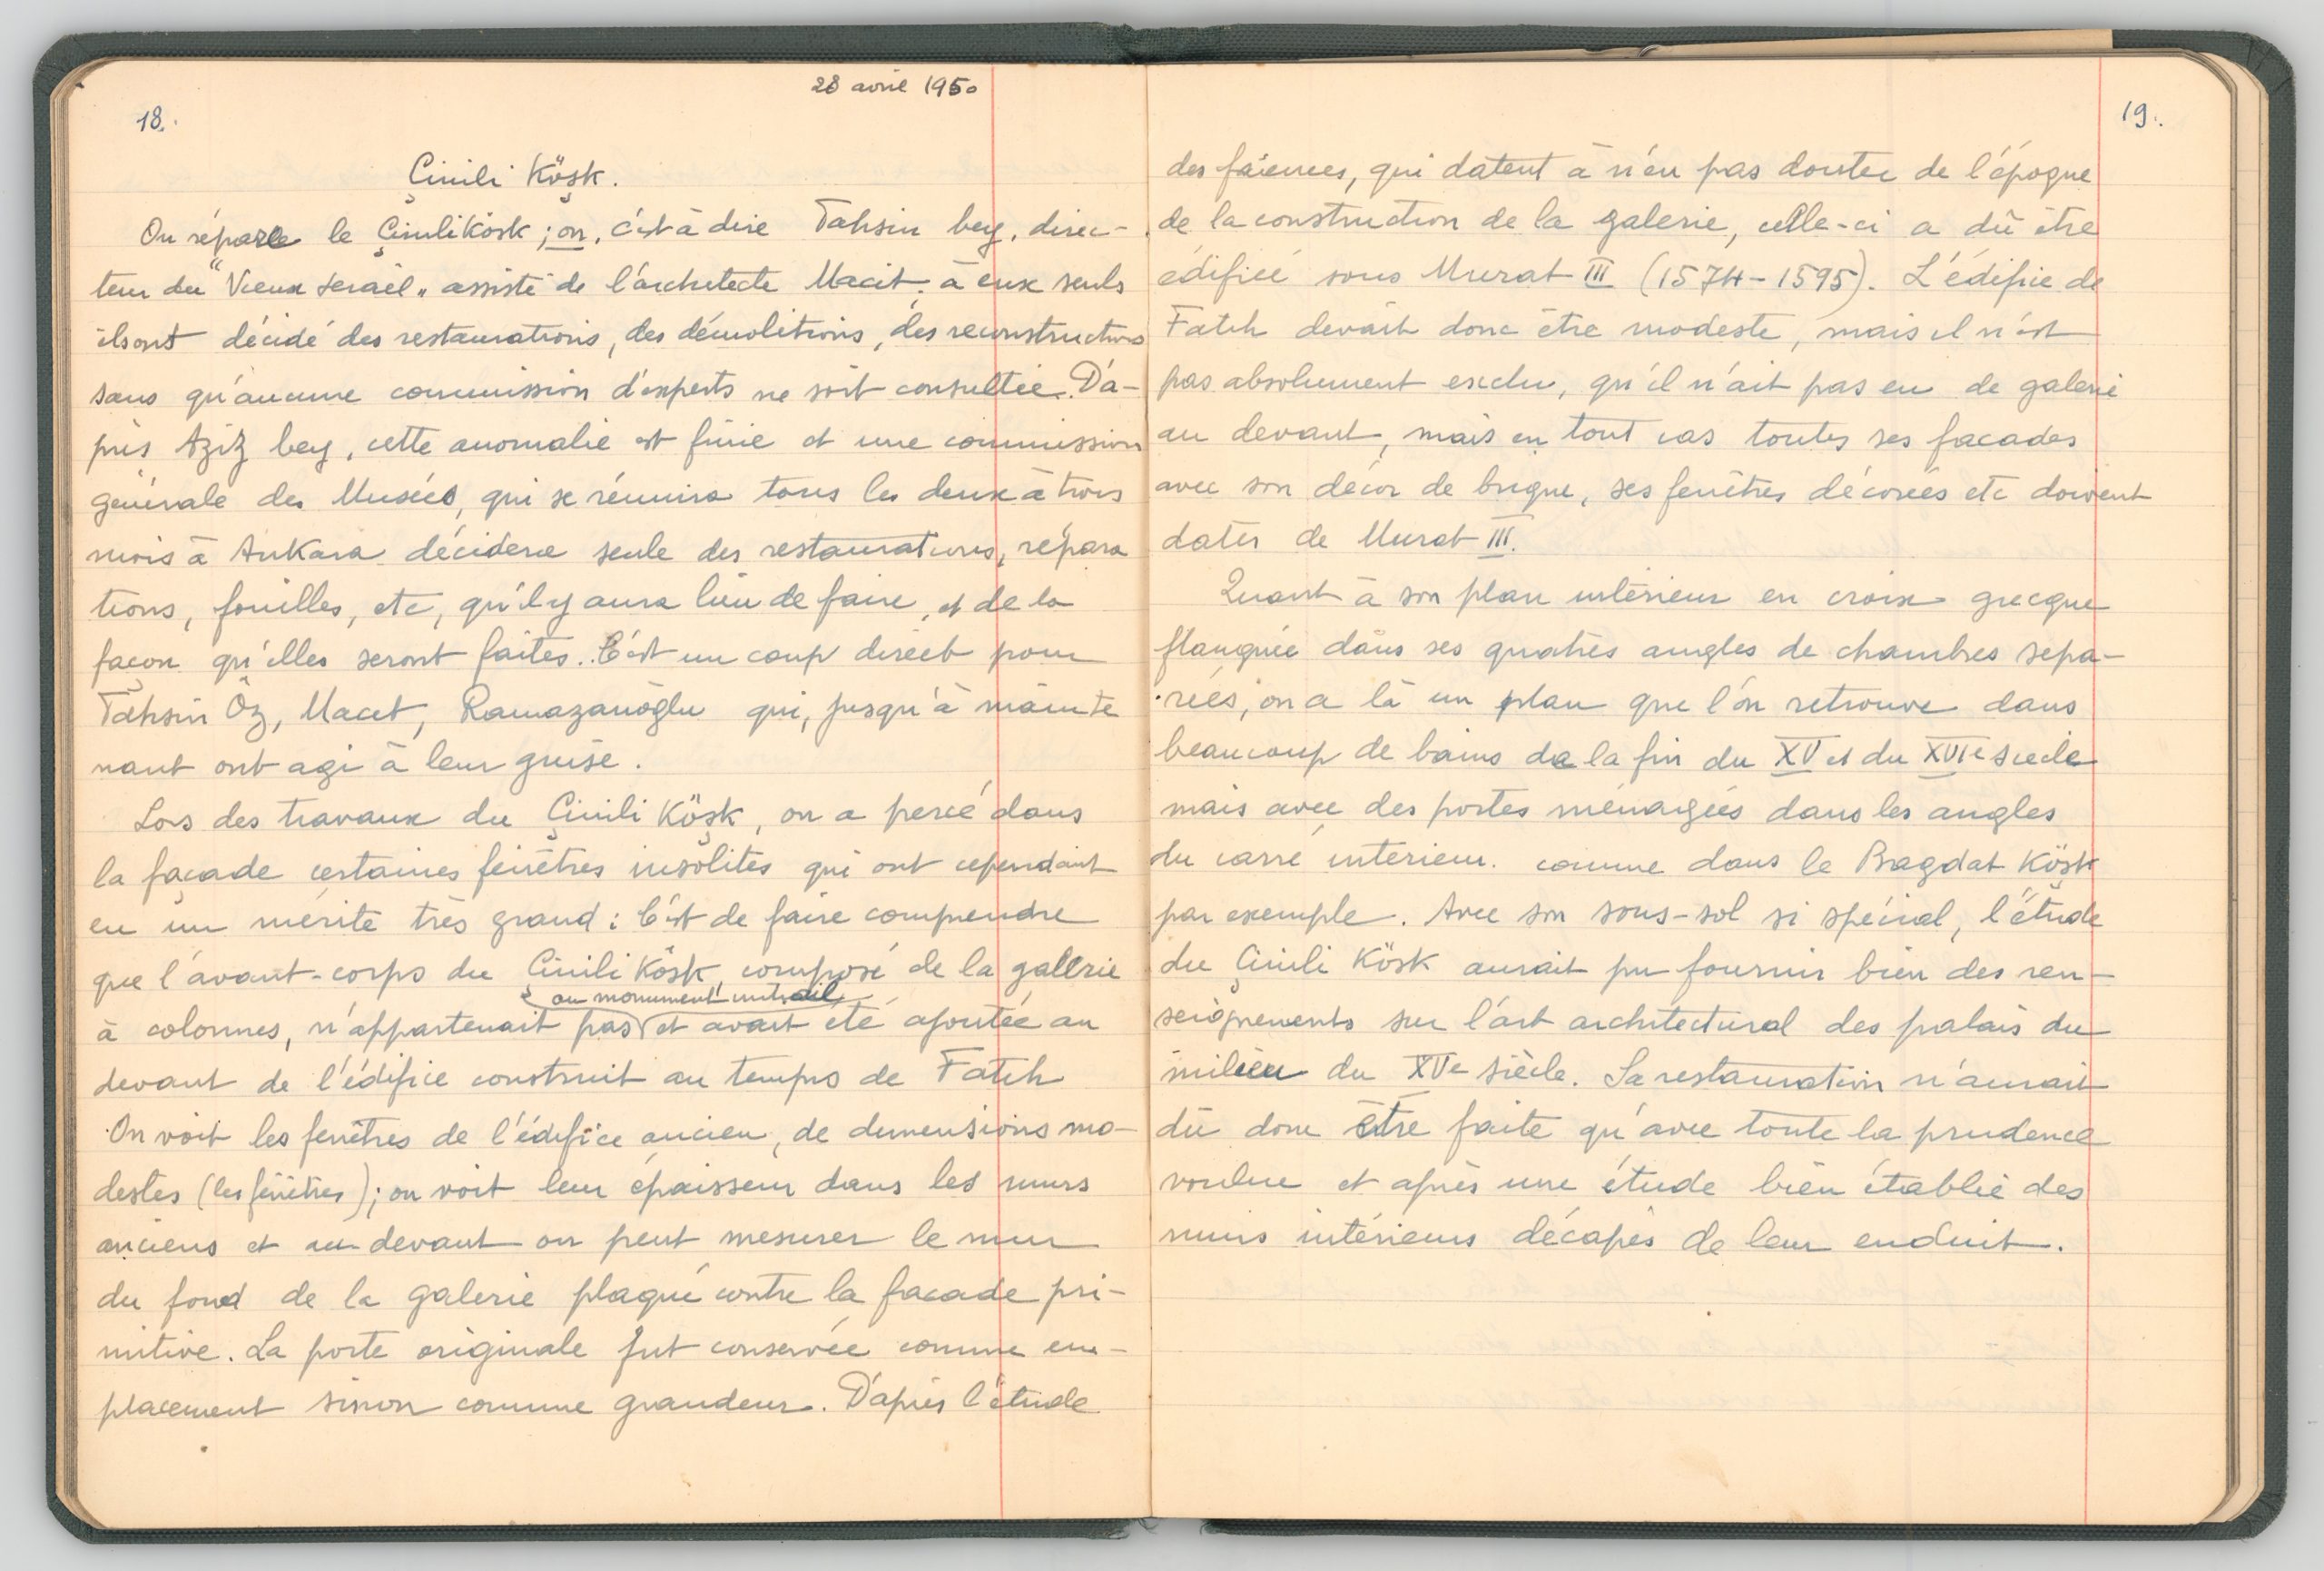 28 avril 1950
18.
Çinili Köşk.
On répare le Çinili Köşk ; on, c'est à dire Tahsin bey, direc-
teur du "Vieux Serail" assisté de l'architecte Macit. à eux seuls
ils ont décidé des restaurations, des démolitions, des reconstructions
sans qu'aucune commission d'experts ne soit consultée. D'a-
près Aziz bey, cette anomalie est finie et une commission
générale des Musées, qui se réunira tous les deux à trois
mois à Ankara décidera seule des restaurations, répara
tions, fouilles, etc, qu'il y aura lieu de faire, et de la
façon qu'elles seront faites. C'est un coup direct pour
Tahsin Öz, Macit, Ramazanoğlu qui, jusqu'à mainte
nant ont agi à leur guise.
Lors des travaux du Çinili Köşk, on a percé dans
la façade certaines fenêtres insolites qui ont cependant
eu un mérite très grand : C'est de faire comprendre
que l'avant-corps du Çinili Köşk, composé de la gallerie
au monument initial,
à colonnes, n'appartenait pas et avait été ajoutée au
devant de l'édifice construit au temps de Fatih
On voit les fenêtres de l'édifice ancien, de dimensions mo-
destes (les fenêtres) ; on voit leur épaisseur dans les murs
anciens et au devant on peut mesurer le mur
du fond de la galerie plaqué contre la facade pri-
mitive. La porte originale fut conservée comme em-
placement sinon comme grandeur. D'après l'étude
19.
des faïences, qui datent à n'en pas douter de l'époque
de la construction de la galerie, celle-ci a dû être
édifiée sous Murat III (1574-1595). L'édifice de
Fatih devait donc être modeste, mais il n'est
pas absolument exclu, qu'il n'ait pas eu de galerie
au devant, mais en tout cas toutes ses facades
avec son décor de brique, ses fenêtres décorées etc doivent
dater de Murat III.
Quant à son plan intérieur en croix grecque
flanquée dans ses quatres angles de chambres sépa-
rées, on a là un plan que l'on retrouve dans
beaucoup de bains de la fin du XV et du XVIe siècle
mais avec des portes ménagées dans les angles
du carré intérieur. comme dans le Bagdat Köşk
par exemple. Avec son sous-sol si spécial, l'étude
du Çinili Köşk aurait pu fournir bien des ren-
seignements sur l'art architectural des palais du
milieu du XVe siècle. Sa restauration n'aurait
dû donc être faite qu'avec toute la prudence
voulue et après une étude bien établie des
murs intérieurs décapés de leur enduit.